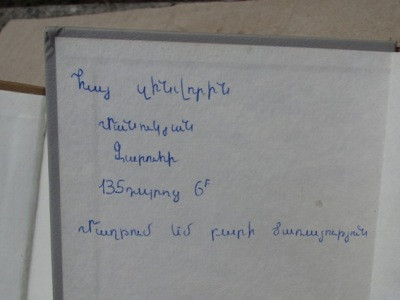 Հայ զինվորին
Մանուկյան
Զարուհի
135 դպրոց 6Բ
Մաղթում եմ բարի ծառայություն